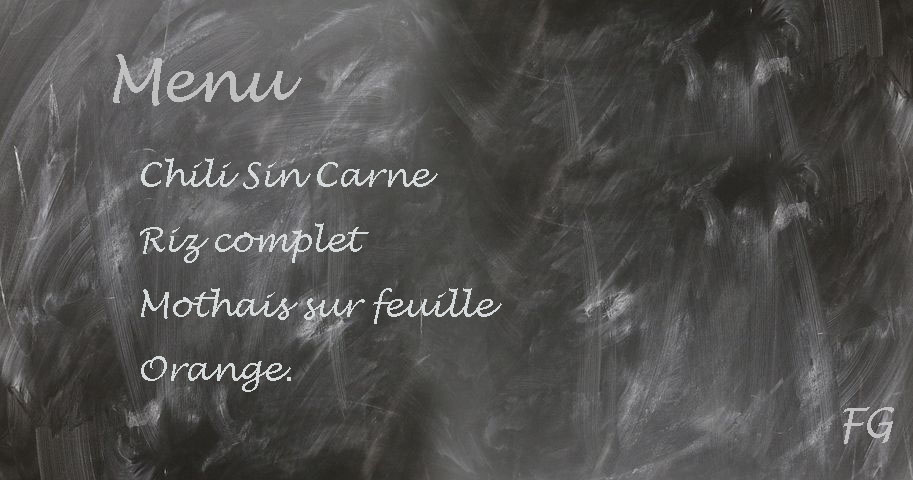 Menu
Chili Sin Carne
Riz complet
Mothais sur feuille
Orange.
FG